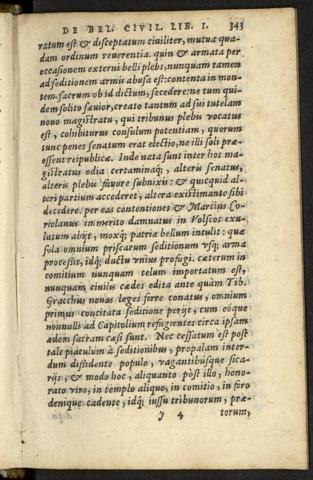 DE BEL. CIVIL. LIB. I. 343
ratum est & disceptatum ciuiliter, mutua qua-
dam ordinum reuerentia. quin & armata per
occasionem externi belli plebs, nunquam tamen
ad seditionem armis abusa est: contenta in mon-
tem sacrum ob id dictum, secedere: ne tum qui-
dem solito sæuior, creato tantum ad sui tutelam
nouo magistratu, qui tribunus plebis vocatus
est, cohibiturus consulum potentiam, quorum
tunc penes senatum erat electio, ne illi soli præ-
essent reipublicæ. Inde nata sunt inter hos ma-
gistratus odia certaminaq;, alteris senatus,
alteris plebis fauore subnixis: & quicquid al-
teri partium accederet, altera existimante sibi
decedere. per eas contentiones & Marcius Co-
riolanus immerito damnatus in Volscos exu-
latum abijt, moxq; patriæ bellum intulit: quæ
sola omnium priscarum seditionum vsq; arma
processit, idq; ductu vnius profugi. cæterum in
comitium nunquam telum importatum est,
nunquam ciuilu cædes edita ante quàm Tib.
Gracchus nouas leges ferre conatus, omnium
primus concitata seditione perijt, cum eoque
nonnulli ad Capitolium refugientes circa ipsam
ædem sacram cæsi sunt. Nec cessatum est post
tale piaculum à seditionibus, propalam inter-
dum dissidente populo, vagantibúsque sica-
rijs, & modo hoc, aliquanto pòst illo, hono-
rato viro, in templo aliquo, in comitio, in foro
denique cadente, idq; iussu tribunorum, præ-
y 4 torum,